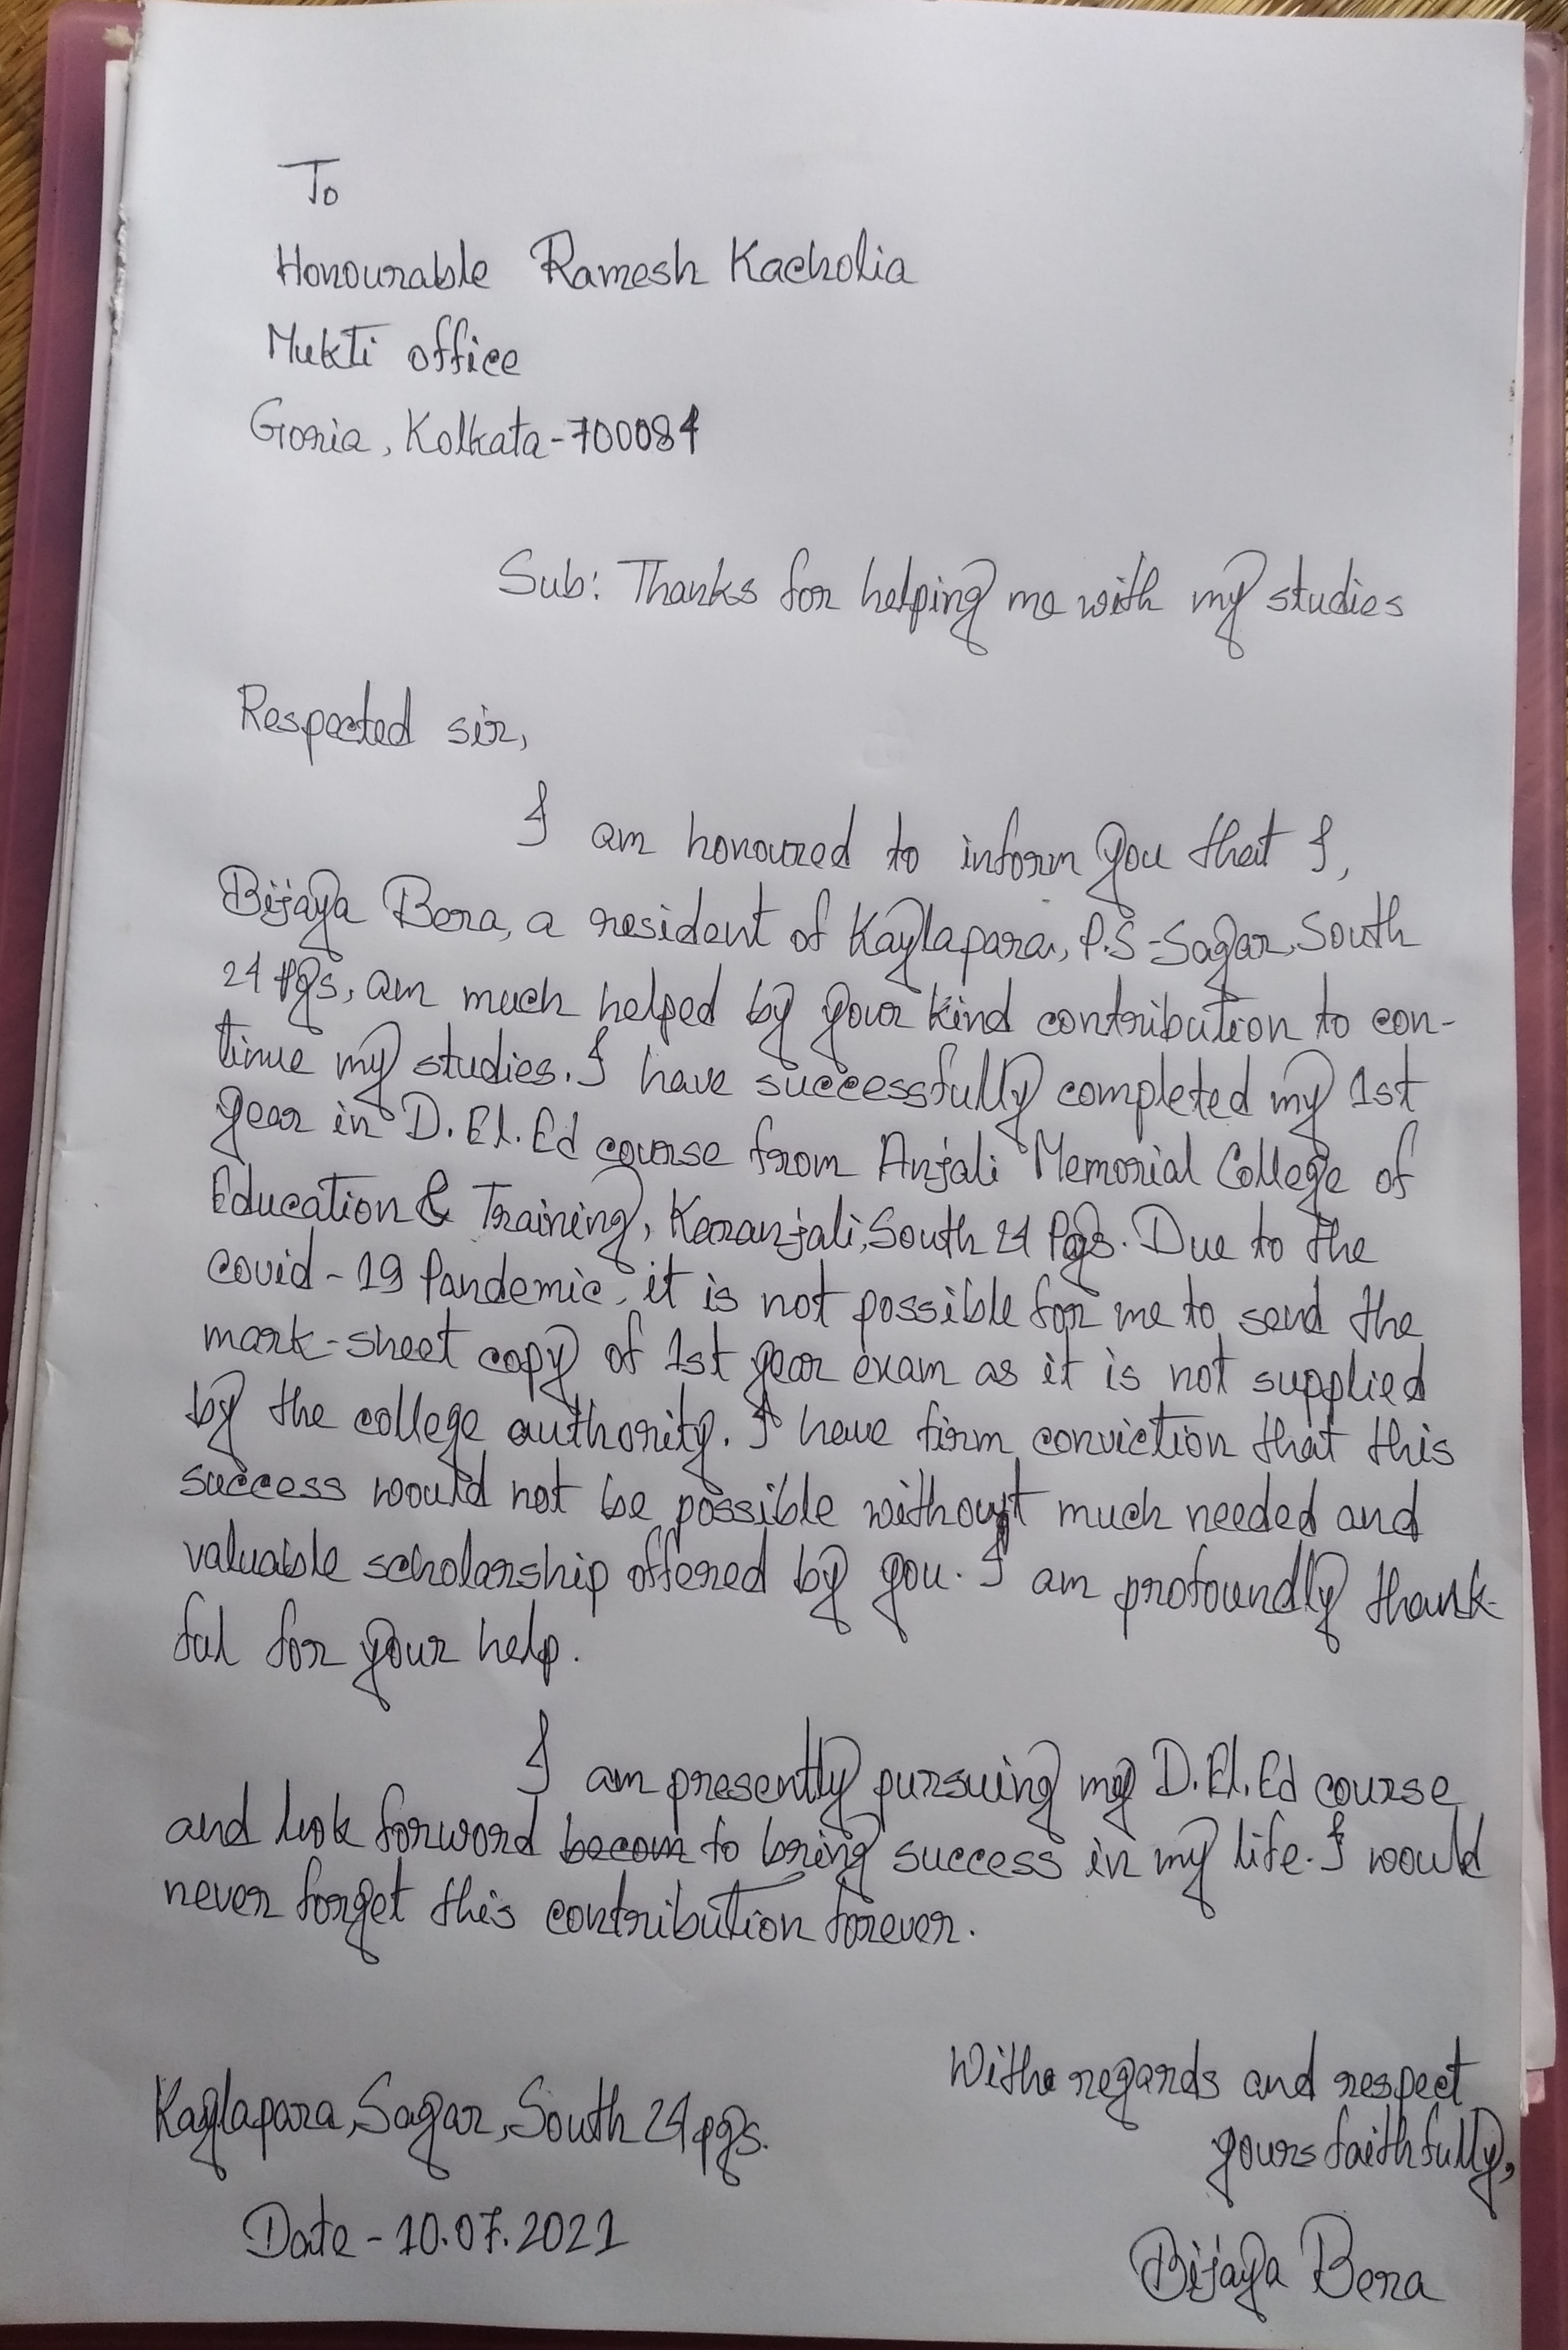 To
Honourable Ramesh Kacholia
Mukti office
Goria, Kolkata-700084
Sub: Thanks for helping me with my studies
Respected sir,
I am honoured to inform you that I,
Bijaya Bera, a resident of Kaylapara, P.S-Sagar, South
24 Pgs, am much helped by your kind contribution to con-
tinue my studies. I have successfully completed my 1st
year in D. El. Ed course from Anjali Memorial College of
Education & Training, Karanjali, South 24 Pgs. Due to the
covid-19 Pandemic, it is not possible for me to send the
mark-sheet copy of 1st year exam as it is not supplied
by the college authority. I have firm conviction that this
success would not be possible without much needed and
valuable scholarship offered by you. I am profoundly thank-
ful for your help.
I am presently pursuing my D. El. Ed course
and look forword becom to bring success in my life. I would
never forget this contribution forever.
Withe regards and respect
yours faithfully,
Kaylapara, Sagar, South 24 pgs.
Date - 10.07.2021
Bijaya Bera